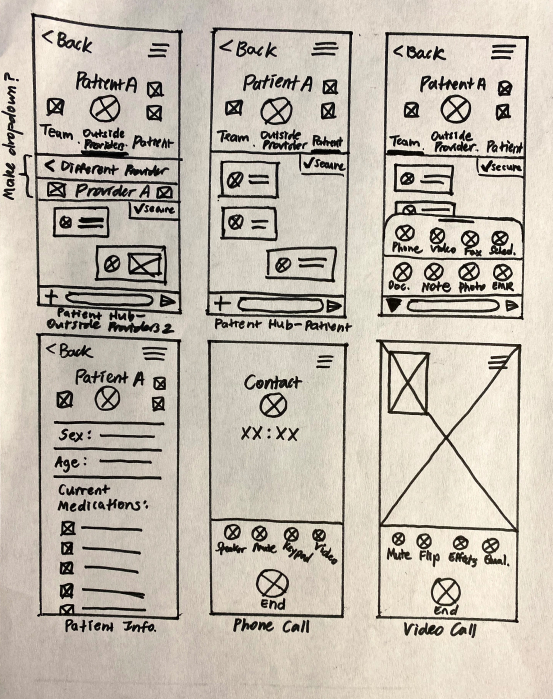 Make dropdown?
< Back
Patient A
Team
Outside Provider
Patient
< Different Provider
Provider A
✓secure
+
Patient Hub-
Outside Providers 2
< Back
Patient A
Team
Outside Provider
Patient
✓secure
+
Patient Hub-Patient
< Back
Patient A
Team
Outside Provider
Patient
✓secure
Phone Video Fax Sched.
Doc. Note Photo EMR
< Back
Patient A
Sex:
Age:
Current
Medications:
Patient Info.
Contact
XX:XX
Speaker Mute Keypad Video
End
Phone Call
Mute Flip Effects
End
Video Call